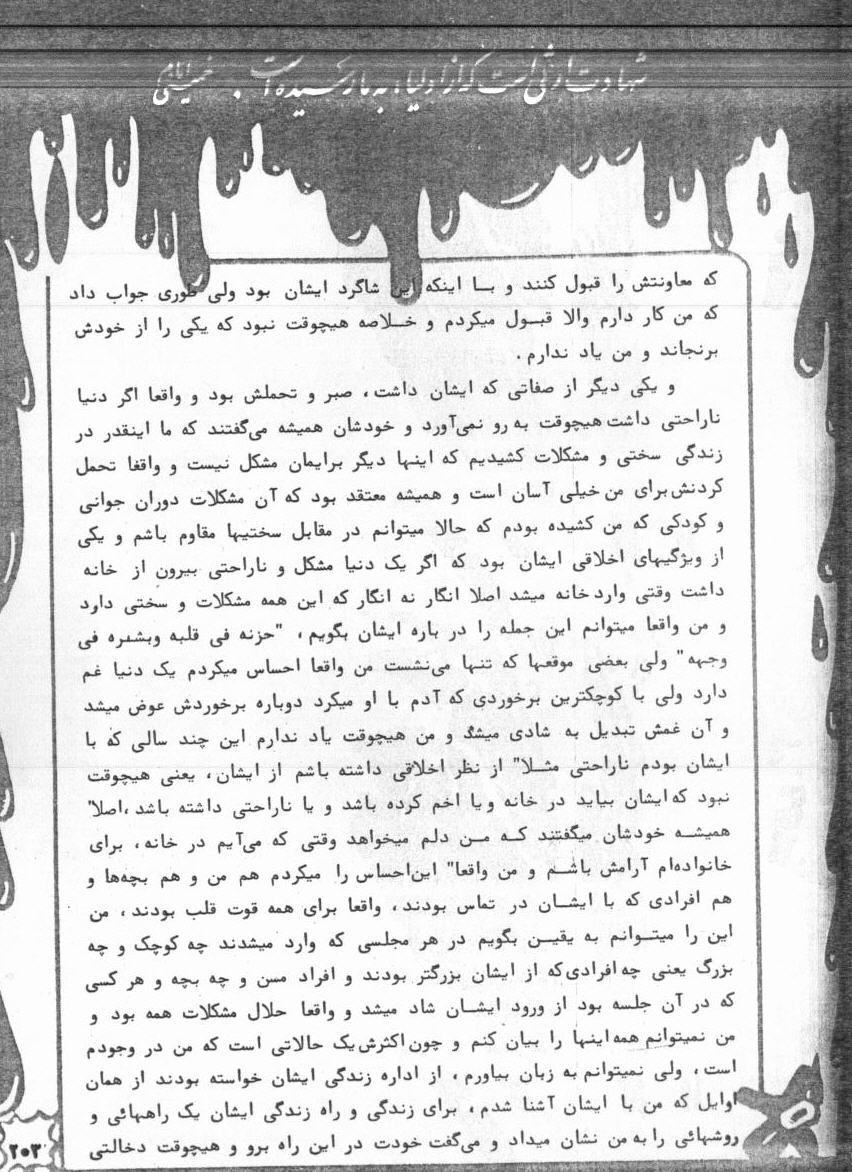 شهادت ارثی است که از اولیاء به ما رسیده است. امام خمینی
که معاونتش را قبول کنند و بـا اینکه این شاگرد ایشان بود ولی طوری جواب داد
که من کار دارم والا قبـول میکردم و خـلاصه هیچوقت نبود که یکی را از خودش
برنجاند و من یاد ندارم.
و یکی دیگر از صفاتی که ایشان داشت، صبر و تحملش بود و واقعا اگر دنیا
ناراحتی داشت هیچوقت به رو نمی‌آورد و خودشان همیشه می‌گفتند که ما اینقدر در
زندگی سختی و مشکلات کشیدیم که اینها دیگر برایمان مشکل نیست و واقعا تحمل
کردنش برای من خیلی آسان است و همیشه معتقد بود که آن مشکلات دوران جوانی
و کودکی که من کشیده بودم که حالا میتوانم در مقابل سختیها مقاوم باشم و یکی
از ویژگیهای اخلاقی ایشان بود که اگر یک دنیا مشکل و ناراحتی بیرون از خانه
داشت وقتی وارد خانه میشد اصلا انگار نه انگار که این همه مشکلات و سختی دارد
و من واقعا میتوانم این جمله را در باره ایشان بگویم، "حزنه فی قلبه وبشره فی
وجهه" ولی بعضی موقعها که تنها می‌نشست من واقعا احساس میکردم یک دنیا غم
دارد ولی با کوچکترین برخوردی که آدم با او میکرد دوباره برخوردش عوض میشد
و آن غمش تبدیل به شادی میشد و من هیچوقت یاد ندارم این چند سالی که با
ایشان بودم ناراحتی مثـلا" از نظر اخلاقی داشته باشم از ایشان، یعنی هیچوقت
نبود که ایشان بیاید در خانه و یا اخم کرده باشد و یا ناراحتی داشته باشد، اصلا"
همیشـه خودشان میگفتند کـه مـن دلم میخواهد وقتی که می‌آیم در خانه، برای
خانواده‌ام آرامش باشـم و من واقعا" این احساس را میکردم هم من و هم بچه‌ها و
هم افرادی که با ایشـان در تماس بودند، واقعا برای همه قوت قلب بودند، من
این را میتـوانم به یقیـن بگویم در هر مجلسی که وارد میشدند چه کوچک و چه
بزرگ یعنی چه افرادی که از ایشان بزرگتر بودند و افراد مسن و چه بچه و هر کسی
که در آن جلسه بود از ورود ایشـان شاد میشد و واقعا حلال مشکلات همه بود و
من نمیتوانم همه اینها را بیان کنم و چون اکثرش یک حالاتی است که من در وجودم
است، ولی نمیتوانم به زبان بیاورم، از اداره زندگی ایشان خواسته بودند از همان
اوایل که من با ایشان آشنا شدم، برای زندگی و راه زندگی ایشان یک راههائی و
روشهائی را به من نشان میداد و می‌گفت خودت در این راه برو و هیچوقت دخالتی
۲۰۳